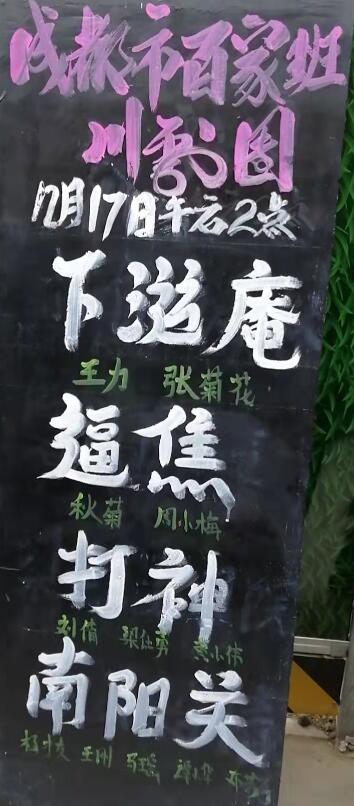 成都市百家班
川剧团
12月17日午后2点
下游庵
王力 张菊花
逼焦
秋菊 周小梅
打神
刘倩 梁仕勇 小伟
南阳关
王刚 马瑶